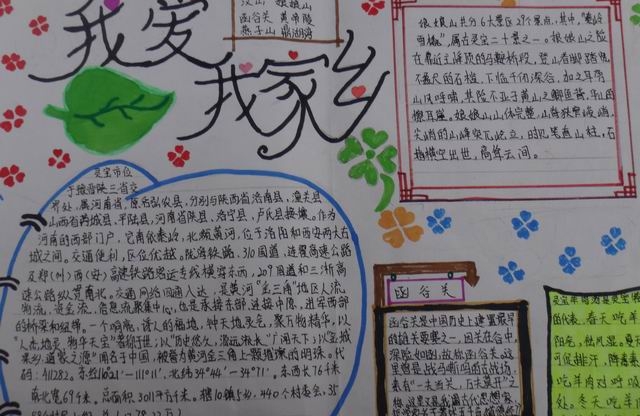 我爱
我家乡
汉山 娘娘山
函谷关 黄帝陵
燕子山 鼎湖湾
灵宝市位
于豫晋陕三省交
界处,属河南省,原名弘农县,分别与陕西省洛南县,潼关县
山西省芮城县,平陆县,河南省陕县,洛宁县,卢氏县接壤。作为
河南的西部门户,它南依秦岭,北濒黄河,位于洛阳和西安两大古
城之间。交通便利,区位优越,陇海铁路,310国道,连霍高速公路
及郑(州)西(安)高速铁路客运专线横穿东西,209国道和三淅高
速公路纵贯南北。交通网络四通八达,是黄河"金三角"地区人流、
物流,资金流、信息流聚集中心,也是承接东部、连接中原、进军西部
的桥梁和纽带。一个响亮、诱人的福地,钟天地灵气,聚万物精华,以
"人杰地灵,物华天宝"誉称于世,以"历史悠久,源远流长"广闻天下,以"金城
果乡,道家之源"闻名于中国,被誉为黄河金三角上一颗璀璨的明珠。代
码:411282。东经110°21'-111°11',北纬34°44'-34°71'。东西长76千米
南北宽69千米,总面积3011平方千米。辖10镇5乡,440个村委会,35
娘娘山共分6大景区
属古灵宝二十景之一。娘娘山之险
在靠近主峰顶的马鞍桥段,登山者脚踏仅
不盈尺的石檐,下临千仞深谷,加之耳旁
山风呼啸,其险不亚于黄山之鲫鱼背,华山的
擦耳崖。娘娘山山体完整,山脊狭窄波峭,
尖峭的山峰突兀屹立,时见悬崖山柱,石
指横空出世,高耸云间。
函谷关
函谷关是中国历史上建置最早
的雄关要塞之一,因关在谷中,
深险如函,故称函谷关。这
里曾是战马嘶鸣的古战场,
素有"一夫当关,万夫莫开"之
称,这里又是我国古代思想家、
的代表。春天吃羊
可促排汗,降毒素
吃羊肉对呼吸
冬天吃羊